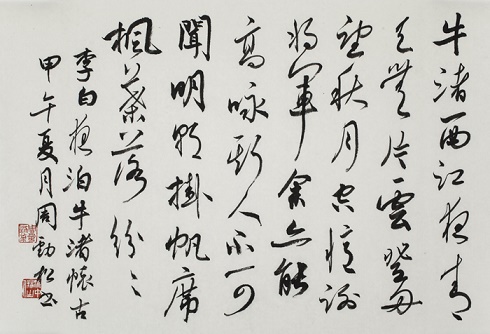 牛渚西江夜青
天無片雲登舟
望秋月空憶謝
将軍余亦能
高詠斯人不可
聞明朝掛帆席
楓葉落紛〻
李白夜泊牛渚懷古
甲午夏月周勁松书